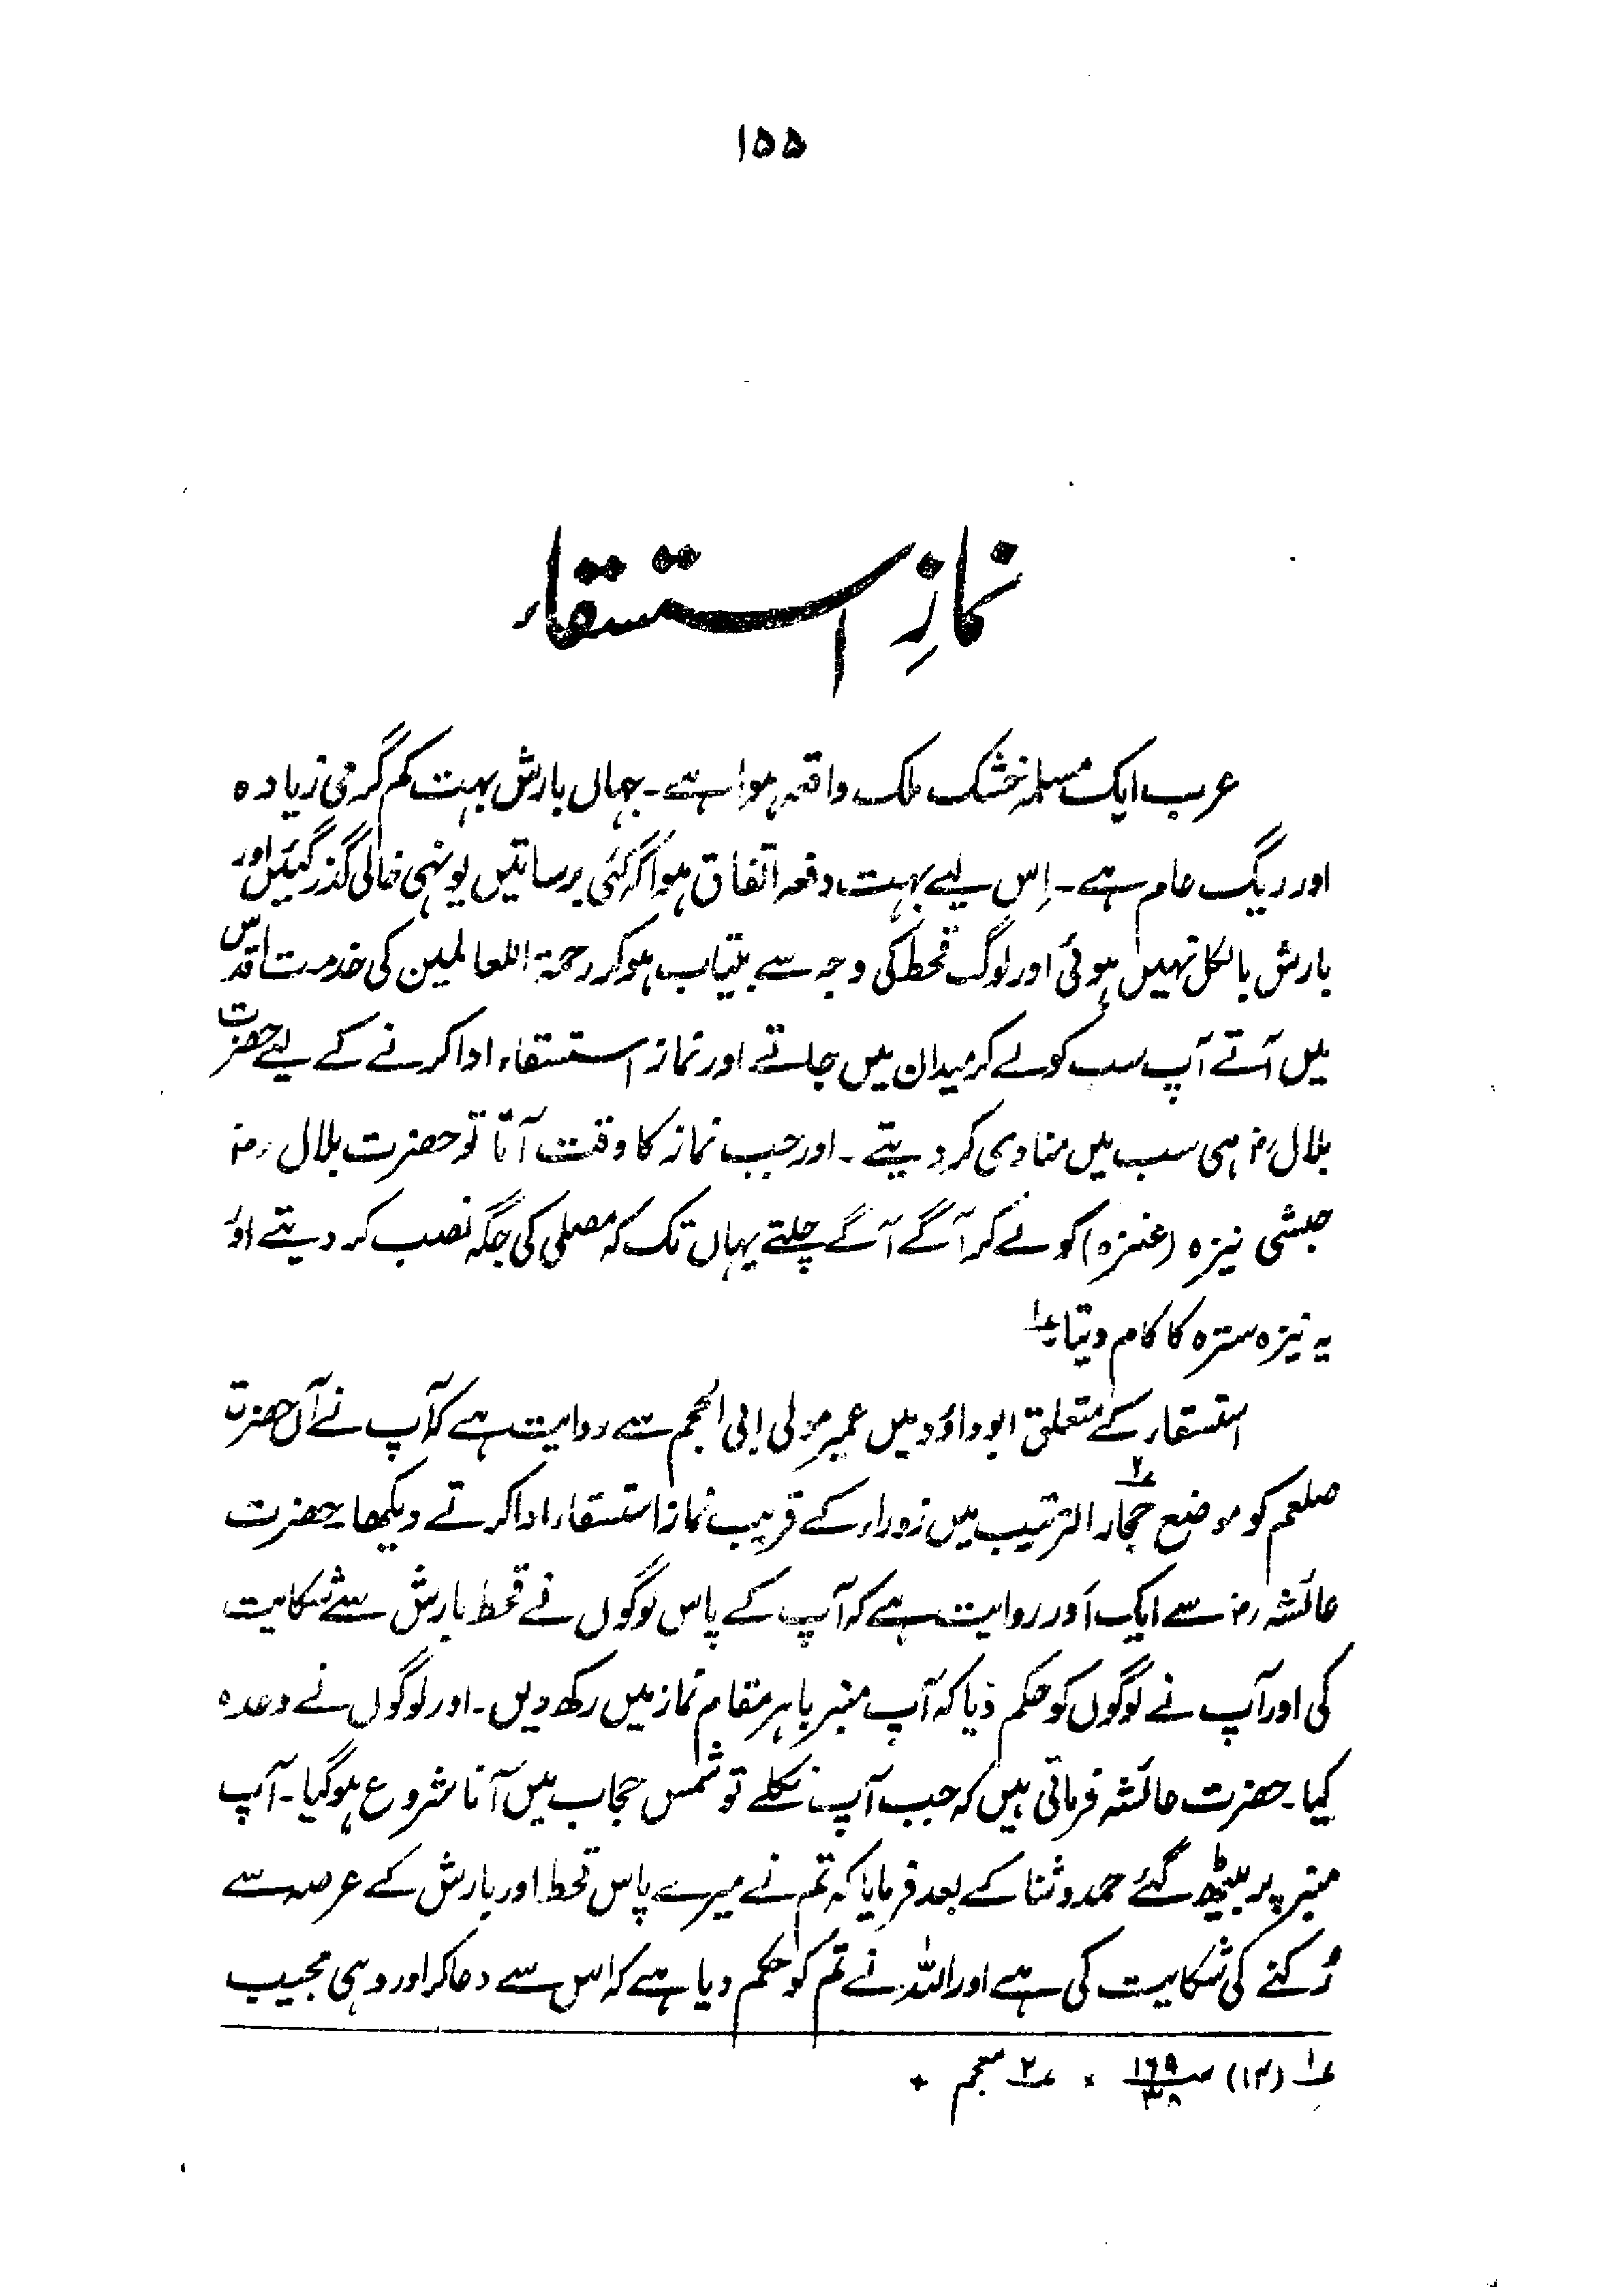 ۱۵۵
نمازِ استسقاء
عرب ایک مسلمہ خشک ملک واقعہ ہوا ہے۔ جہاں بارش بہت کم گرمی زیادہ
اور ریگ عام ہے۔ اِس لیے بہت دفعہ اتفاق ہوا کہ کئی برساتیں یونہی خالی گذر گئیں اور
بارش بالکل نہیں ہوئی اور لوگ قحط کی وجہ سے بیتاب ہو کر رحمۃ اللعالمین کی خدمت اقدس
میں آتے آپ سب کو لے کر میدان میں جاتے اور نماز استسقاء ادا کرنے کے لیے حضرت
بلال رض ہی سب میں منادی کر دیتے۔ اور جب نماز کا وقت آتا تو حضرت بلال رض
حبشی نیزہ (عنزہ) کو لے کر آگے آگے چلتے یہاں تک کہ مصلی کی جگہ نصب کر دیتے اور
یہ نیزہ سترہ کا کام دیتا۔ ؏۱
استسقاء کے متعلق ابوداؤد میں عمیر مولی ابی اللحم سے روایت ہے کہ آپ نے آں حضرت
صلعم کو موضع حجار الترتیب ؏۲ میں زوراء کے قریب نماز استسقاء ادا کرتے دیکھا۔ حضرت
عائشہ رض سے ایک اَور روایت ہے کہ آپ کے پاس لوگوں نے قحط بارش سے شکایت
کی اور آپ نے لوگوں کو حکم دیا کہ آپ منبر باہر مقام نماز میں رکھ دیں۔ اور لوگوں نے وعدہ
کیا۔ حضرت عائشہ فرماتی ہیں کہ جب آپ نکلے تو شمس حجاب میں آنا شروع ہو گیا۔ آپ
منبر پر بیٹھ گئے حمد و ثنا کے بعد فرمایا کہ تم نے میرے پاس قحط اور بارش کے عرصہ سے
رُکنے کی شکایت کی ہے اور اللہ نے تم کو حکم دیا ہے کہ اس سے دعا کر اور وہی مجیب
؏۱ (۱۳) ص ۱۶۹ × ؏۲ معجم +